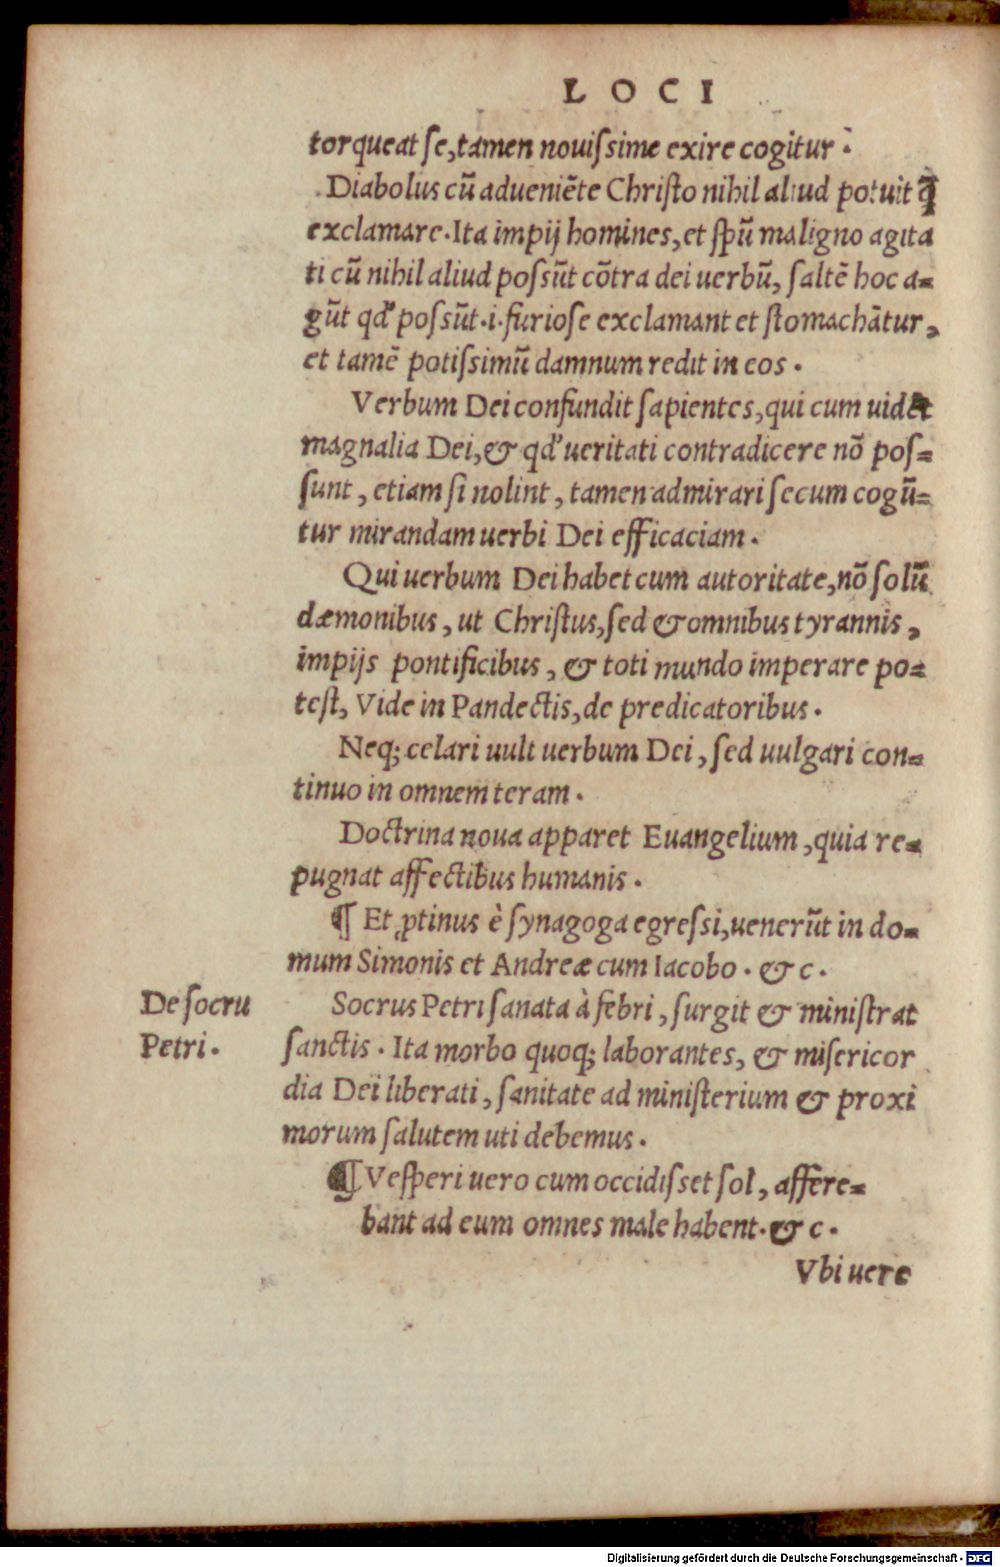 LOCI
torqueat se, tamen nouissime exire cogitur.
Diabolus cū adueniēte Christo nihil aliud potuit q̄
exclamare. Ita impij homines, et spū maligno agita
ti cū nihil aliud possūt cōtra dei uerbū, saltē hoc a-
gūt qd' possūt .i. furiose exclamant et stomachātur,
et tamē potissimū damnum redit in eos.
Verbum Dei confundit sapientes, qui cum uidēt
magnalia Dei, & qd' ueritati contradicere nō pos-
sunt, etiam si nolint, tamen admirari secum cogū-
tur mirandam uerbi Dei efficaciam.
Qui uerbum Dei habet cum autoritate, nō solū
dæmonibus, ut Christus, sed & omnibus tyrannis,
impijs pontificibus, & toti mundo imperare po-
test, Vide in Pandectis, de predicatoribus.
Neq; celari uult uerbum Dei, sed uulgari con-
tinuo in omnem teram.
Doctrina noua apparet Euangelium, quia re-
pugnat affectibus humanis.
¶ Et ꝓtinus è synagoga egressi, uenerūt in do-
mum Simonis et Andreæ cum Iacobo. & c.
De socru
Petri.
Socrus Petri sanata à febri, surgit & ministrat
sanctis. Ita morbo quoq; laborantes, & misericor
dia Dei liberati, sanitate ad ministerium & proxi
morum salutem uti debemus.
¶ Vesperi uero cum occidisset sol, affere-
bant ad eum omnes male habent. & c.
Vbi uere
Digitalisierung gefördert durch die Deutsche Forschungsgemeinschaft - DFG